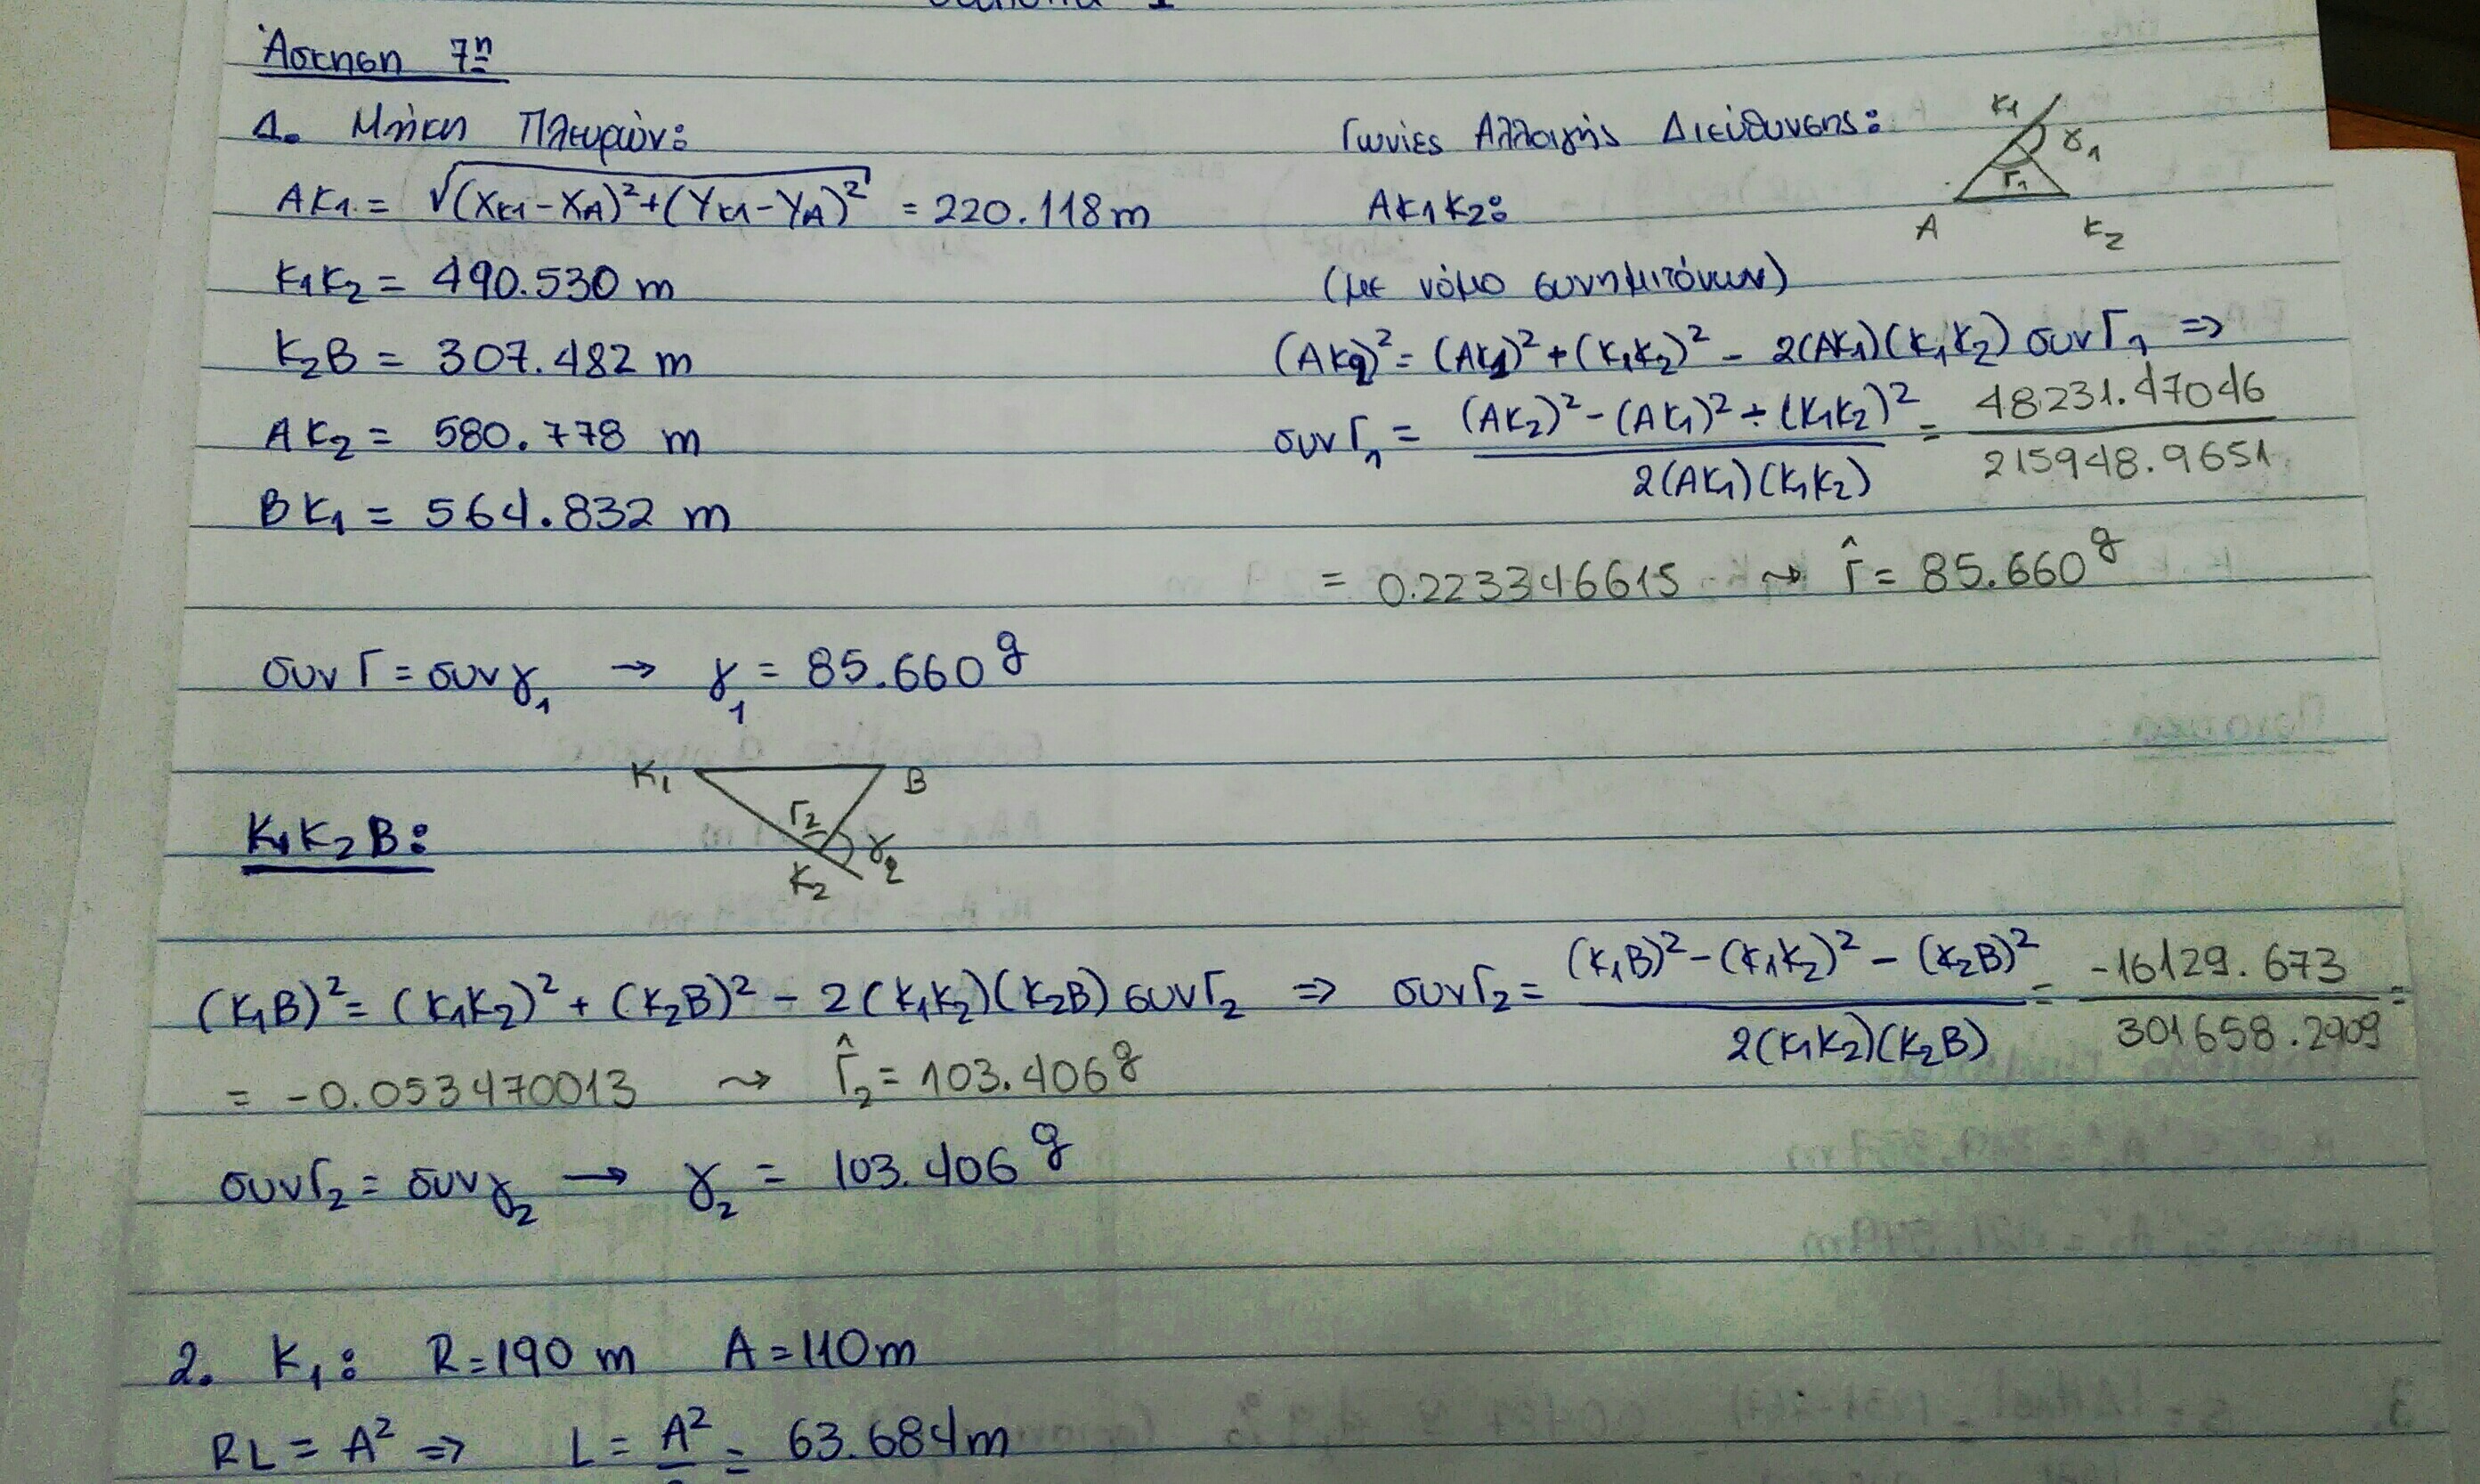 Άσκηση 7η
1. Μήκη Πλευρών:
ΑΚ1 = √(ΧΚ1-ΧΑ)²+(ΥΚ1-ΥΑ)² = 220.118 m
Κ1Κ2 = 490.530 m
Κ2Β = 307.482 m
ΑΚ2 = 580.778 m
ΒΚ1 = 564.832 m
Γωνίες Αλλαγής Διεύθυνσης:
ΑΚ1Κ2:
Κ1
γ1
Γ1
Α
Κ2
(με νόμο συνημιτόνων)
(ΑΚ2)² = (ΑΚ1)² + (Κ1Κ2)² - 2(ΑΚ1)(Κ1Κ2) συνΓ1 ⇒
συνΓ1 = (ΑΚ2)² - (ΑΚ1)² ÷ (Κ1Κ2)² / 2(ΑΚ1)(Κ1Κ2) = 48231.47046 / 215948.9651
= 0.223346615 ⇝ Γ̂ = 85.660g
συνΓ = συνγ1 → γ1 = 85.660g
Κ1
Β
Γ2
γ2
Κ2
Κ1Κ2Β:
(Κ1Β)² = (Κ1Κ2)² + (Κ2Β)² - 2(Κ1Κ2)(Κ2Β) συνΓ2 ⇒ συνΓ2 = (Κ1Β)² - (Κ1Κ2)² - (Κ2Β)² / 2(Κ1Κ2)(Κ2Β) = -16129.673 / 301658.2909 =
= -0.053470013 ⇝ Γ̂2 = 103.406g
συνΓ2 = συνγ2 → γ2 = 103.406g
2. Κ1: R=190 m A=110m
RL = A² ⇒ L = A² = 63.684m